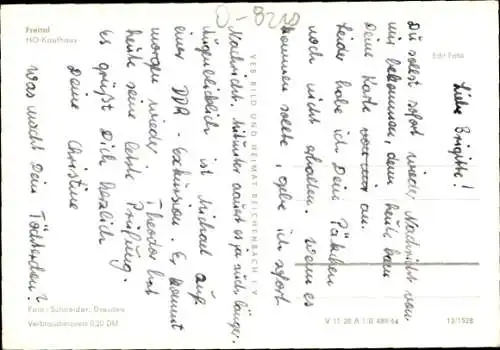 Freital
HO-Kaufhaus
0-8210
Echt Foto
Liebe Brigitte!
Du sollst sofort wieder Nachricht von
mir bekommen, denn heute kam
Deine Karte an.
Leider habe ich Dein Päckchen
noch nicht erhalten. Wenn es
kommen sollte, gebe ich sofort
Nachricht. Mitunter dauert es ja auch länger.
Augenblicklich ist Michael auf
einer DDR-Exkursion. Er kommt
morgen wieder. Theodor hat
heute seine letzte Prüfung.
Es grüßt Dich herzlich
Deine Christine
Was macht Dein Töchterchen?
VEB BILD UND HEIMAT REICHENBACH I. V.
Foto: Schneider, Dresden
Verbraucherpreis 0,20 DM
V 11 28 A 1/B 489/64
12/1528